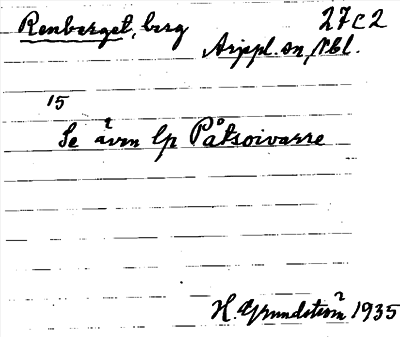 Renberget, berg 27c2
Arjepl. sn, Nbl.
15
Se även lp Påtsoivarre
H. Grundström 1935